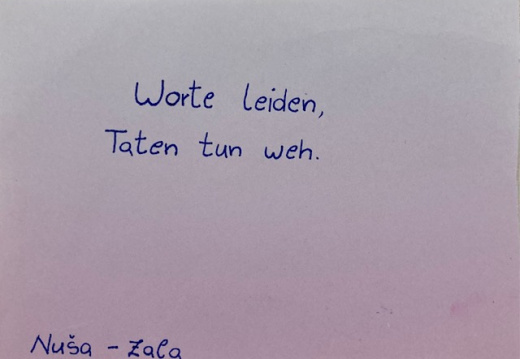 Worte leiden,
Taten tun weh.
Nuša - Zala